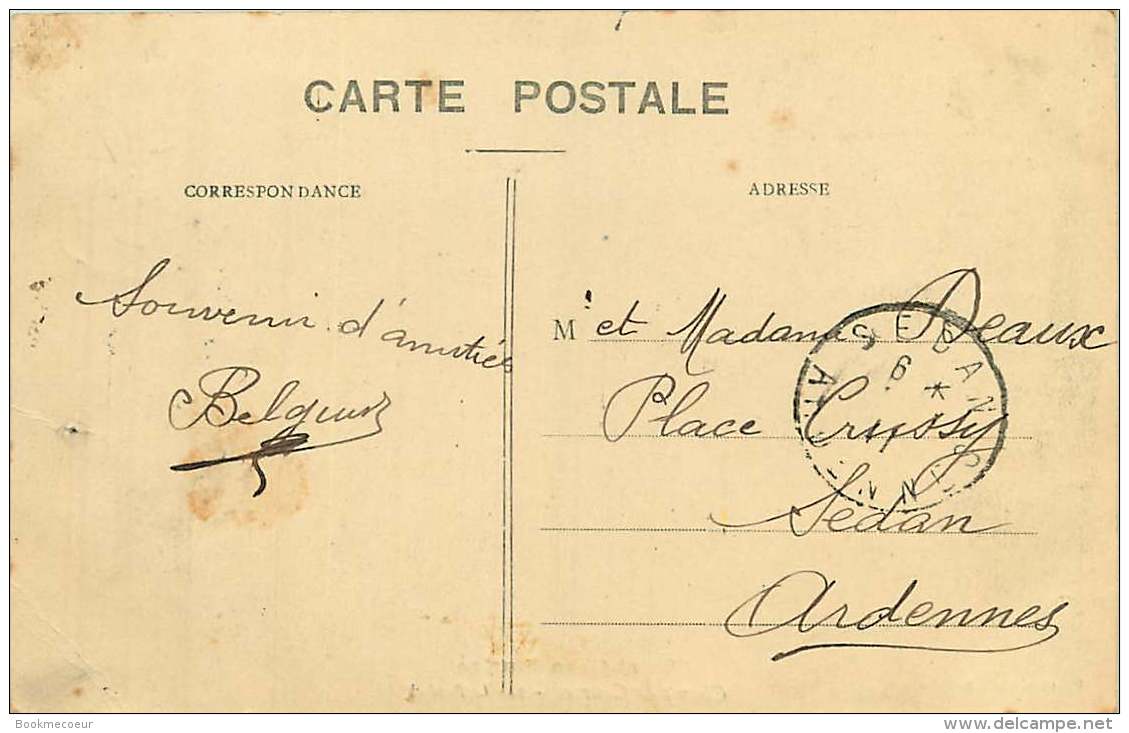 CARTE POSTALE
CORRESPONDANCE
ADRESSE
Souvenir d'amitiés
M et Madame Deaux
Place Crussy
Sedan
Ardennes
SEDAN
6
*
Bookmecoeur
www.delcampe.net